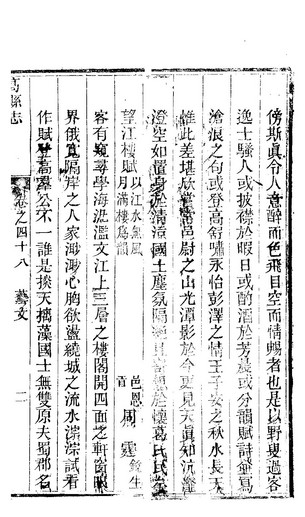 傍斯眞令人意醉而色飛目空而情暢者也是以野叟過客
逸士騷人或披襟於暇日或酌酒於芳晨或分韻賦詩爭寫
滄浪之句或登高舒嘯永怡彭澤之情王子安之秋水長天
惟此差堪欣賞邑尉之山光潭影於今更見天眞知沆瀣
澄空如置身於清涼國土塵氛隔 於懷葛氏民
望江樓賦以江水無風月滿樓爲韻
邑恩貢周霆銓生
客有窺尋學海泚濫文江上三層之樓閣開四面之軒窗
界俄寬隔岸之人家渺渺心胸欲盪繞城之流水淙淙試看
作賦登高羣公不一誰是掞天摛藻國士無雙原夫蜀郡名
縣志
卷之四十八 藝文